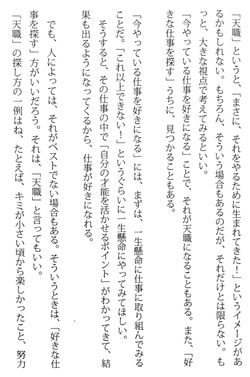 「天職」というと、「まさに、それをやるために生まれてきた！」というイメージがあ
るかもしれない。もちろん、そういう場合もあるのだが、それだけとは限らない。も
っと、大きな視点で考えてみるといい。
「今やっている仕事を好きになる」ことで、それが天職になることもある。また、「好
きな仕事を探す」うちに、見つかることもある。
「今やっている仕事を好きになる」には、まずは、一生懸命に仕事に取り組んでみる
ことだ。「これ以上できない！」というくらいに一生懸命にやってみてほしい。
そうすると、その仕事の中で「自分の才能を活かせるポイント」がわかってきて、結
果も出るようになってくるから、仕事が好きになれる。
でも、人によっては、それがベストでない場合もある。そういうときは、「好きな仕
事を探す」方がいいだろう。それは、「天職」と言ってもいい。
「天職」の探し方の一例はね、たとえば、キミが小さい頃から楽しかったこと、努力